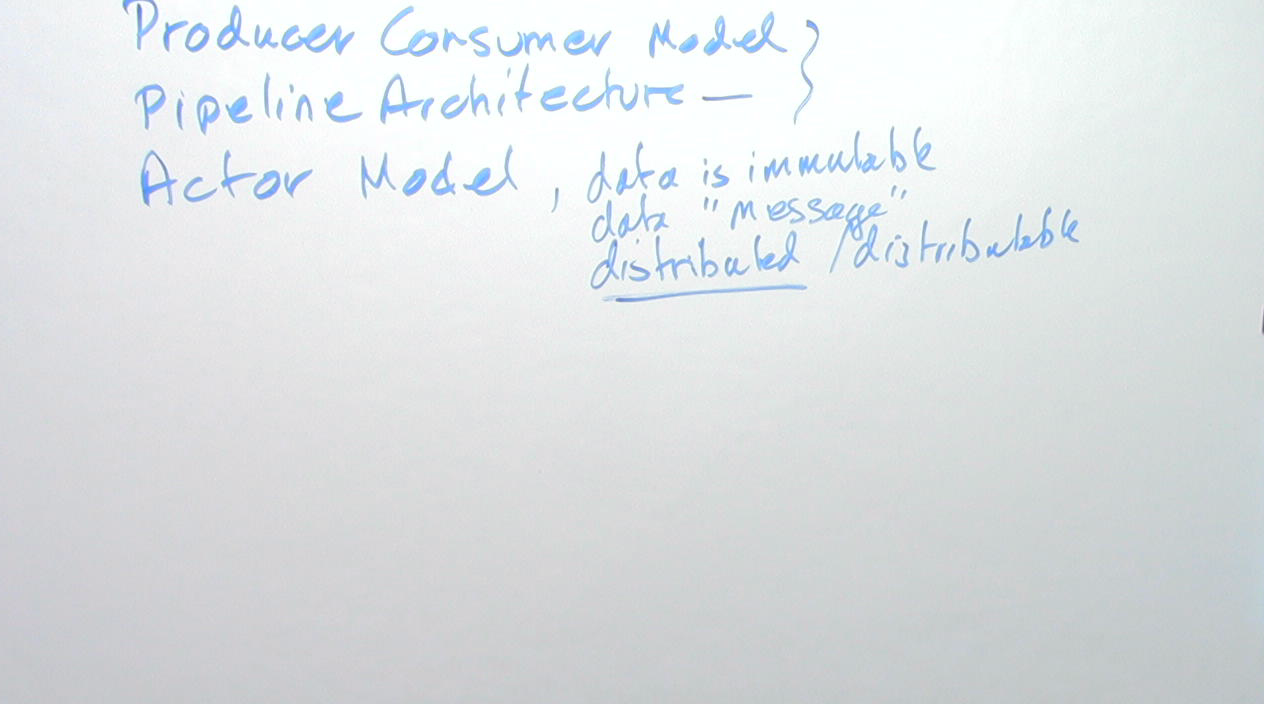 Producer Consumer Model }
Pipeline Architecture —
Actor Model , data is immutable
data "message"
distributed / distributable